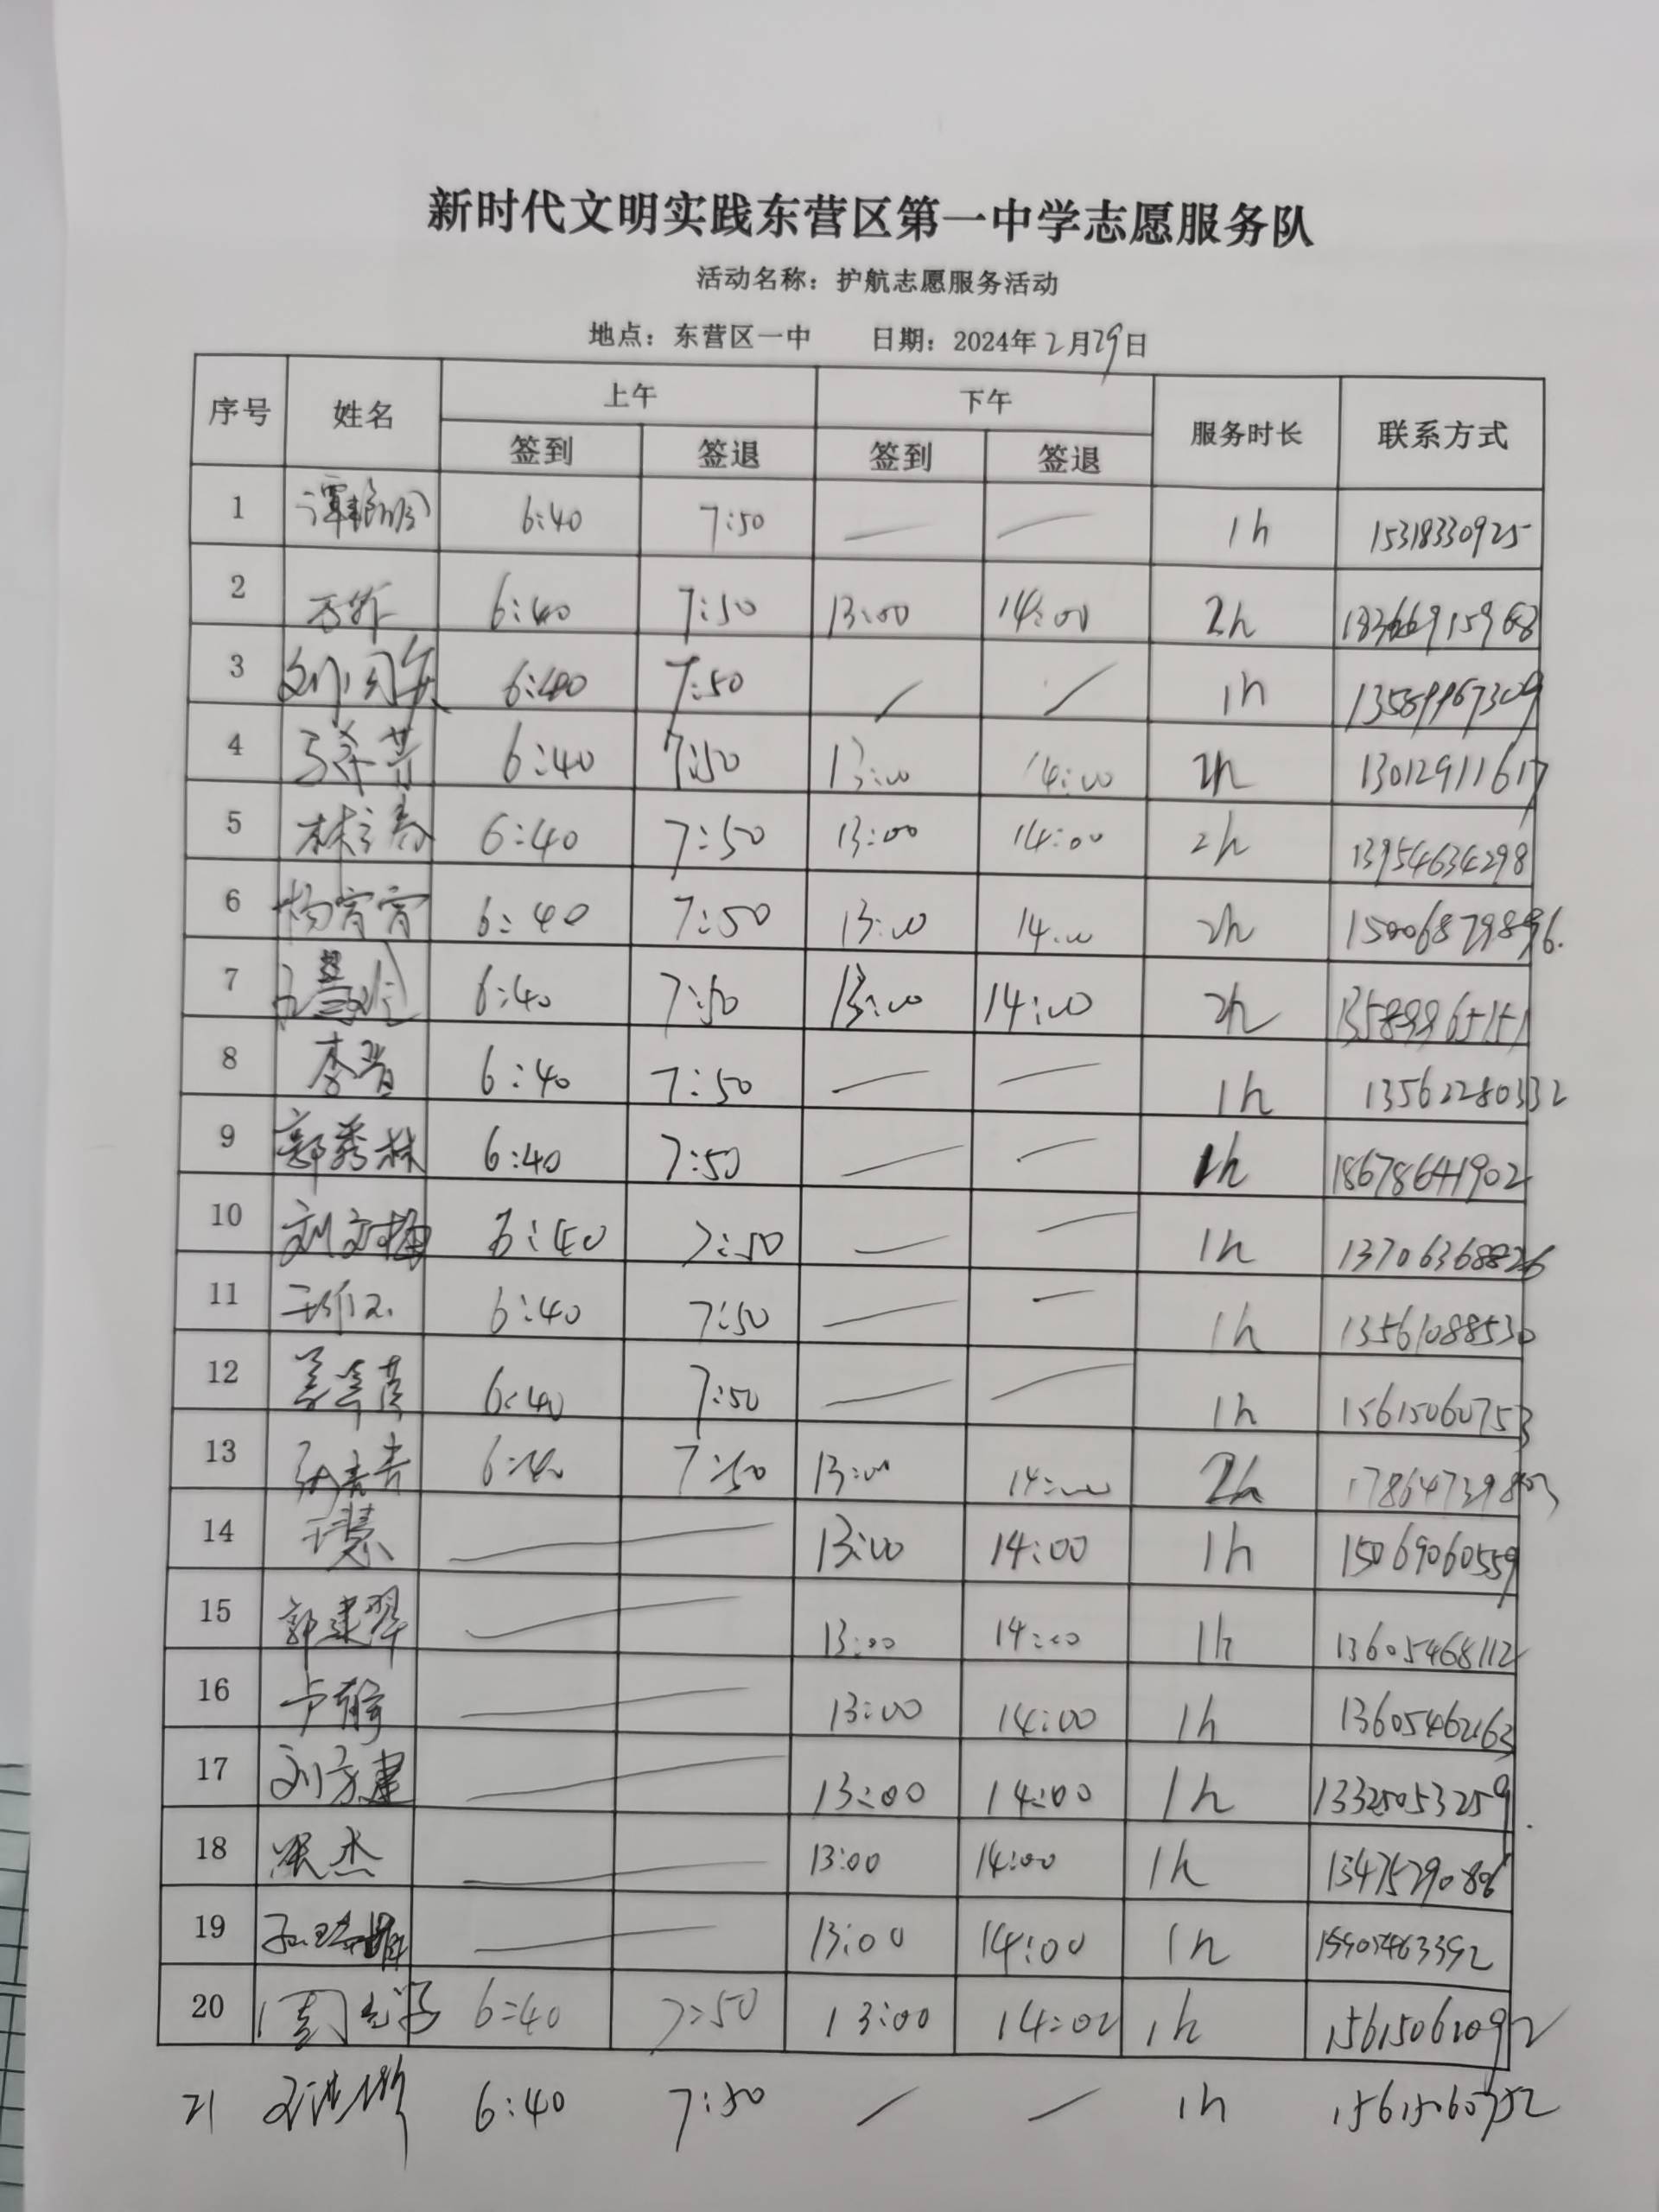 新时代文明实践东营区第一中学志愿服务队
活动名称：护航志愿服务活动
地点：东营区一中 日期：2024年2月29日
序号 姓名 上午 下午 服务时长 联系方式
签到 签退 签到 签退
1 6:40 7:50 — — 1h 15318330925
2 6:40 7:50 13:00 14:00 2h
3 6:40 7:50 / / 1h 13589967309
4 6:40 7:50 13:00 14:00 2h 13012911617
5 6:40 7:50 13:00 14:00 2h 13954634298
6 杨宵宵 6:40 7:50 13:00 14:00 2h 15006879896.
7 6:40 7:50 13:00 14:00 2h 13589965151
8 李晋 6:40 7:50 — — 1h 13562280332
9 郭秀林 6:40 7:50 — — 1h 18678641902
10 刘文梅 6:40 7:50 — — 1h 13706368826
11 6:40 7:50 — — 1h 13561088530
12 6:40 7:50 — — 1h 15615060753
13 6:40 7:50 13:00 14:00 2h 17864739803
14 王慧 — 13:00 14:00 1h 15069060559
15 郭建翠 — 13:00 14:00 1h 13605468112
16 — 13:00 14:00 1h 13605462163
17 刘方建 — 13:00 14:00 1h 13325053259
18 — 13:00 14:00 1h 13475290886
19 — 13:00 14:00 1h 15905463392
20 6:40 7:50 13:00 14:00 1h 15615062092
21 6:40 7:50 / / 1h 15615060752